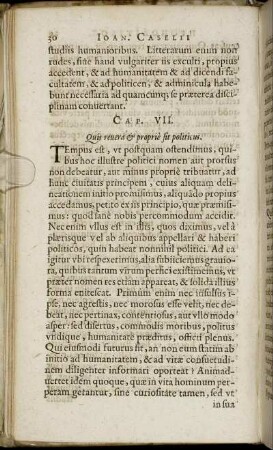 30 IOAN. CASELII
studiis humanioribus. Litterarum enim non
rudes, sine haud vulgariter iis exculti, propius
accedent, & ad humanitatem & ad dicendi fa-
cultatem, & ad politicen, & adminicula habe-
bunt necessaria ad quamcunq; se præterea disci-
plinam convertant.
CAP. VII.
Quis revera & propriè sit politicus.
TEmpus est, vt postquam ostendimus, qui-
bus hoc illustre politici nomen aut prorsus
non debeatur, aut minus propriè tribuatur, ad
hunc civitatis principem, cuius aliquam deli-
neationem initio promisimus, aliquādo propius
accedamus, petito ex iis principio, quæ præmisi-
mus: quod sanè nobis percommodum accidit.
Nec enim vllus est in istis, quos diximus, vel à
plærisque vel ab aliquibus appellari & haberi
politicōn, quin habeat nonnihil politici. Ad ea
igitur vbi respexerimus, alia subiiciemus graviora,
quibus tantum virum perfici existimemus, vt
præter nomen res etiam appareat, & solida illius
forma enitescat. Primùm enim nec insulsus ip-
se, nec agrestis, nec morosus esse velit, nec de-
beat, nec pertinax, contentiosus, aut vllo modo
asper: sed disertus, commodis moribus, politus
vndique, humanitate præditus, officii plenus.
Qui eiusmodi futurus sit, an non eum statim ab
initio ad humanitatem, & ad vitæ consuetudi-
nem diligenter informari oporteat? Animad-
vertet idem quoque, quæ in vita hominum per-
peram gerantur, sine curiositate tamen, sed vt
in sua